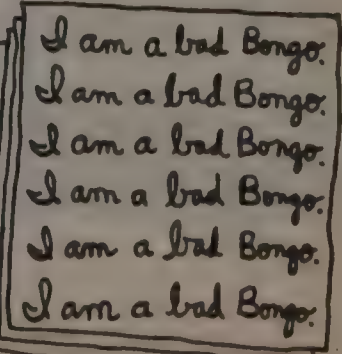 I am a bad Bongo.
I am a bad Bongo.
I am a bad Bongo.
I am a bad Bongo.
I am a bad Bongo.
I am a bad Bongo.